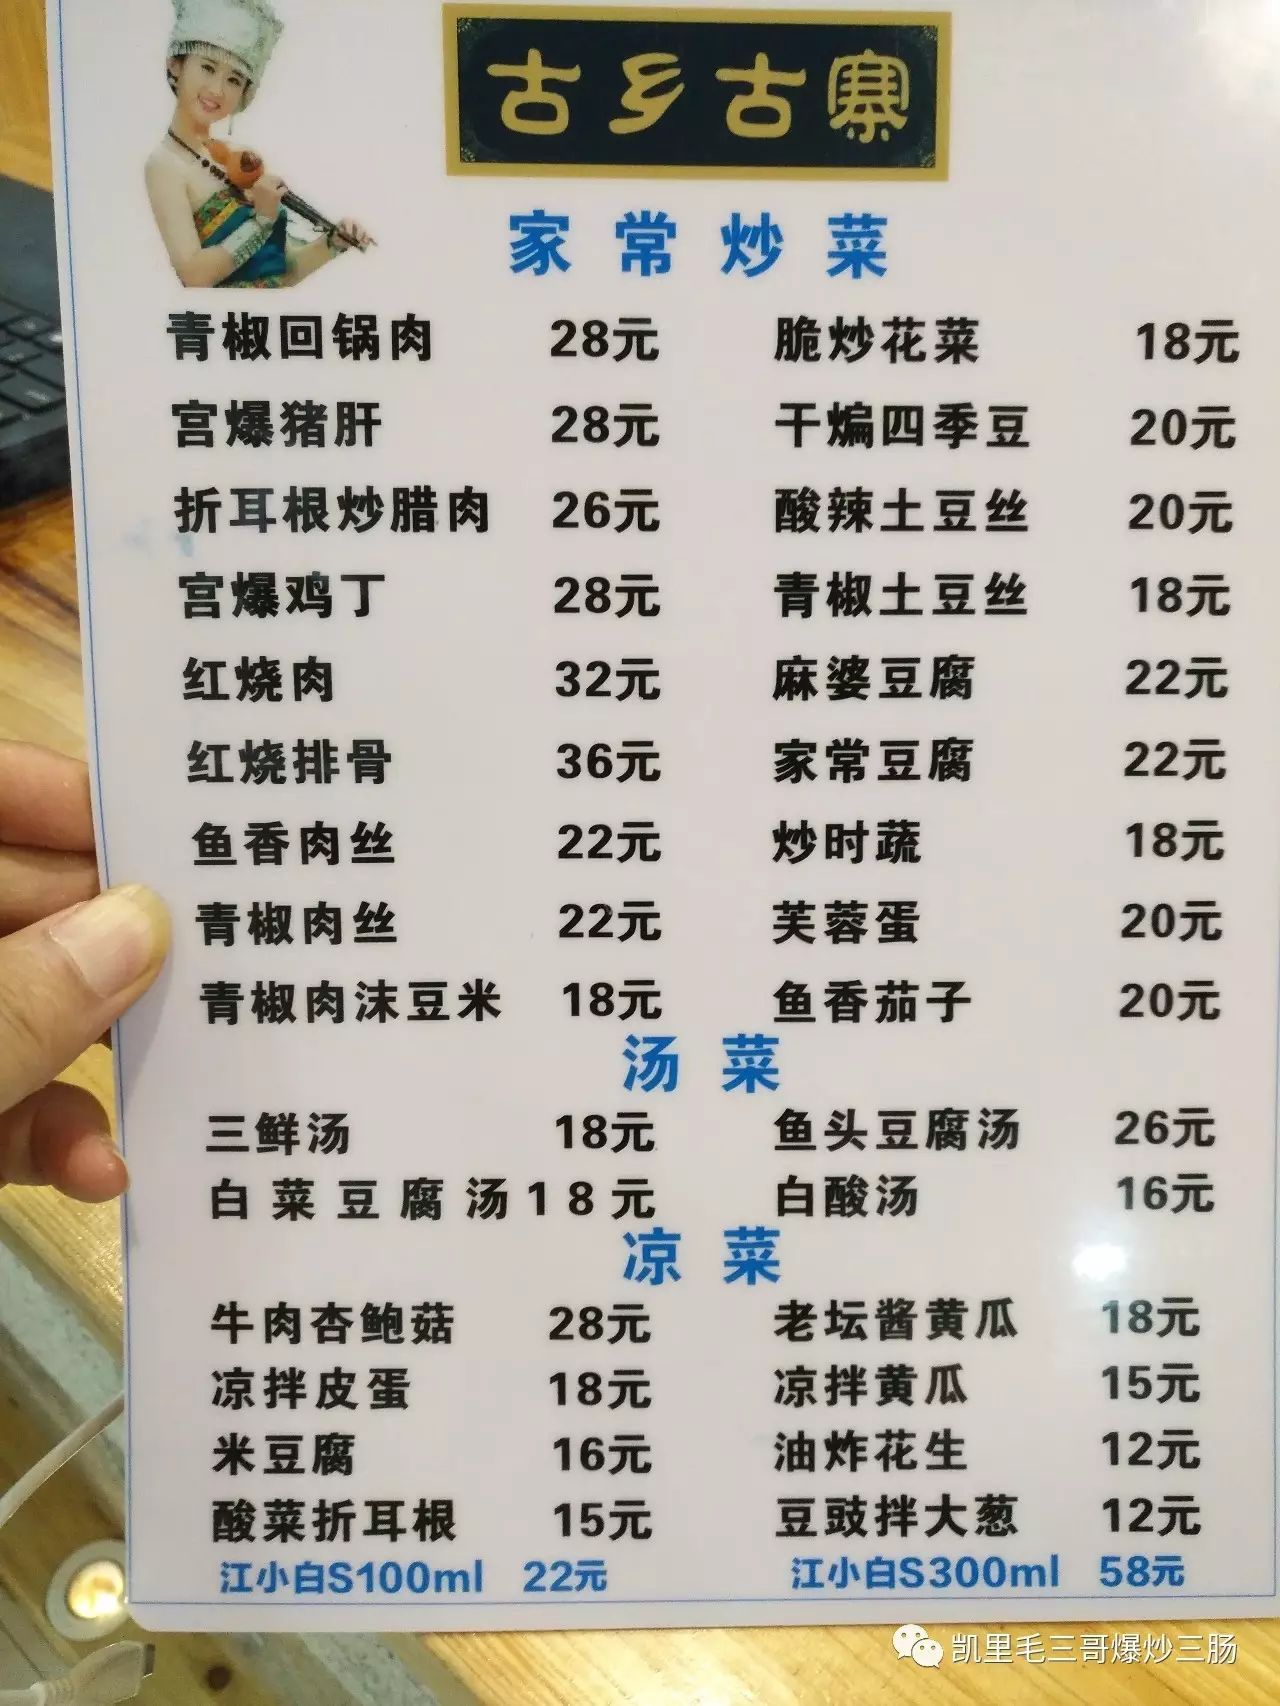 古乡古寨
家常炒菜
青椒回锅肉 28元 脆炒花菜 18元
宫爆猪肝 28元 干煸四季豆 20元
折耳根炒腊肉 26元 酸辣土豆丝 20元
宫爆鸡丁 28元 青椒土豆丝 18元
红烧肉 32元 麻婆豆腐 22元
红烧排骨 36元 家常豆腐 22元
鱼香肉丝 22元 炒时蔬 18元
青椒肉丝 22元 芙蓉蛋 20元
青椒肉沫豆米 18元 鱼香茄子 20元
汤菜
三鲜汤 18元 鱼头豆腐汤 26元
白菜豆腐汤18元 白酸汤 16元
凉菜
牛肉杏鲍菇 28元 老坛酱黄瓜 18元
凉拌皮蛋 18元 凉拌黄瓜 15元
米豆腐 16元 油炸花生 12元
酸菜折耳根 15元 豆豉拌大葱 12元
江小白S100ml 22元 江小白S300ml 58元
凯里毛三哥爆炒三肠